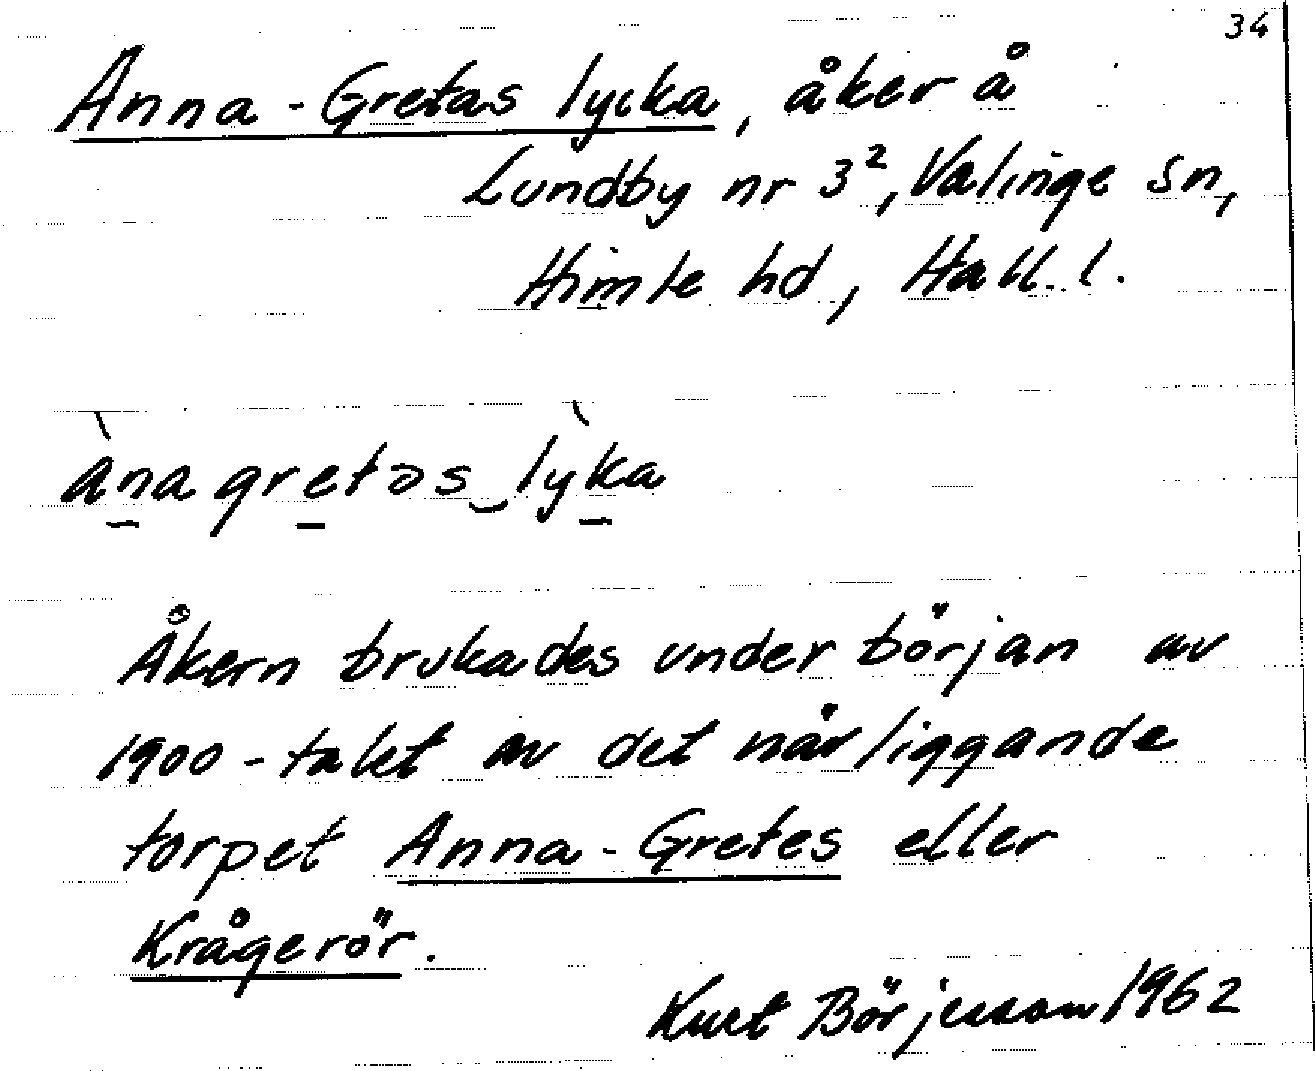 34
Anna-Gretas lycka, åker å
Lundby nr 3², Valinge sn,
Himle hd, Hall. l.
àna gretəs‿lỳka
Åkern brukades under början av
1900-talet av det närliggande
torpet Anna-Gretes eller
Krågerör.
Kurt Börjesson 1962